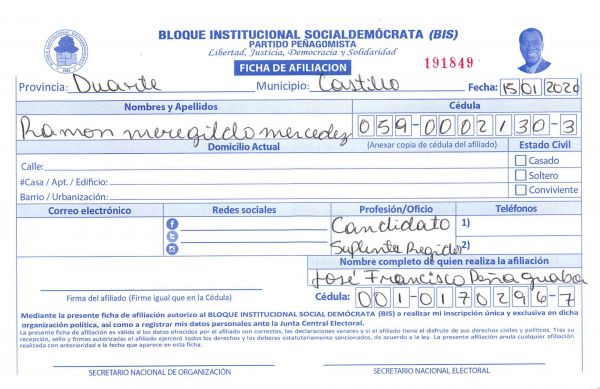 BLOQUE INSTITUCIONAL SOCIALDEMÓCRATA (BIS)
PARTIDO PEÑAGOMISTA
Libertad, Justicia, Democracia y Solidaridad
FICHA DE AFILIACION
191849
Provincia: Duarte Municipio: Castillo Fecha: 15 01 2020
Nombres y Apellidos Cédula
Ramon meregildo mercedez 059-0002130-3
Domicilio Actual (Anexar copia de cédula del afiliado) Estado Civil
Calle: Casado
#Casa / Apt. / Edificio: Soltero
Barrio / Urbanización: Conviviente
Correo electrónico Redes sociales Profesión/Oficio Teléfonos
Candidato 1)
Suplente Regidor 2)
Nombre completo de quien realiza la afiliación
José Francisco Peña guaba
Firma del afiliado (Firme igual que en la Cédula) Cédula: 001-0170296-7
Mediante la presente ficha de afiliación autorizo al BLOQUE INSTITUCIONAL SOCIAL DEMÓCRATA (BIS) a realizar mi inscripción única y exclusiva en dicha
organización política, así como a registrar mis datos personales ante la Junta Central Electoral.
La presente ficha de afiliación es válida si los datos ofrecidos por el afiliado son correctos, las declaraciones veraces y si el afiliado tiene el disfrute de sus derechos civiles y políticos. Tras su
recepción, sello y firmas autorizadas el afiliado ejercerá todos los derechos y las deberes estatutariamente sancionados, de acuerdo a la ley. La presente afiliación anula cualquier afiliación
realizada con anterioridad a la fecha que aparece en esta ficha.
SECRETARIO NACIONAL DE ORGANIZACIÓN SECRETARIO NACIONAL ELECTORAL